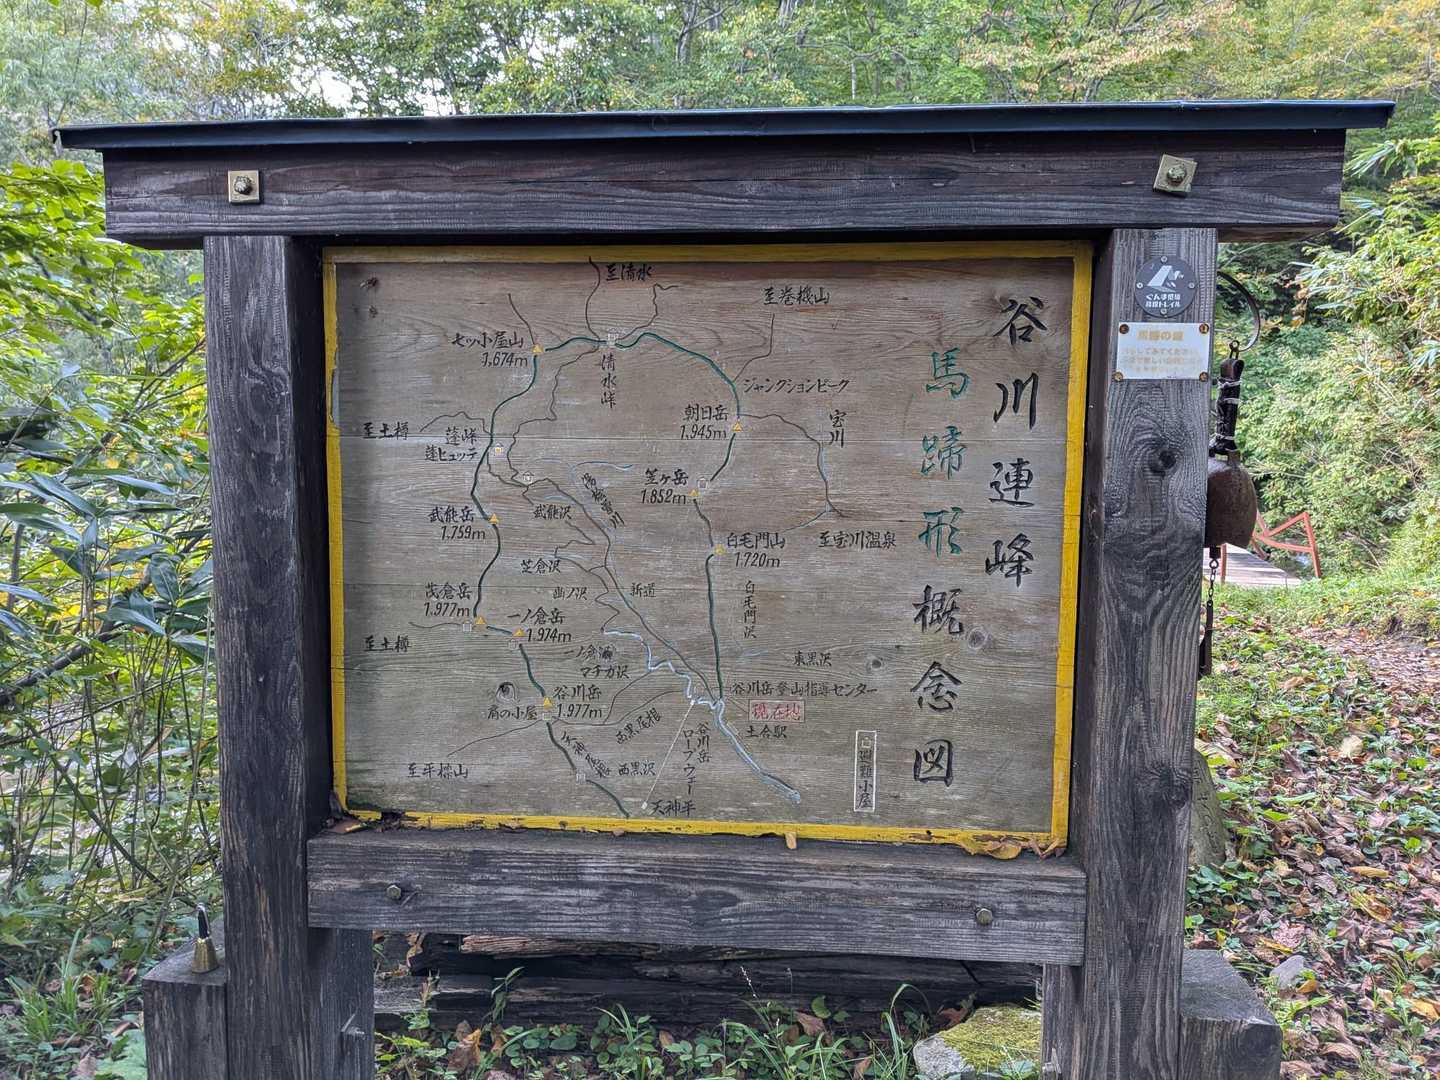 谷川連峰
馬蹄形概念図
至清水
至巻機山
七ッ小屋山
1.674m
清水峠
ジャンクションピーク
朝日岳
1.945m
宝川
至土樽
蓬峠
蓬ヒュッテ
笠ヶ岳
1.852m
武能沢
武能岳
1.759m
白毛門山
1.720m
至宝川温泉
芝倉沢
幽ノ沢
新道
白毛門沢
茂倉岳
1.977m
一ノ倉岳
1.974m
至土樽
一ノ倉沢
マチガ沢
東黒沢
谷川岳
1.977m
肩の小屋
谷川岳登山指導センター
現在地
土合駅
西黒尾根
天神尾根
西黒沢
谷川岳
ロープウェー
至平標山
天神平
避難小屋
ぐんま県境
稜線トレイル